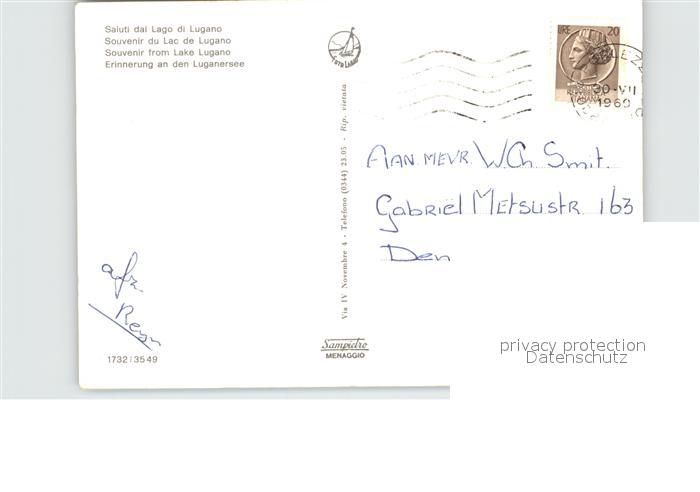 Saluti dal Lago di Lugano
Souvenir du Lac de Lugano
Souvenir from Lake Lugano
Erinnerung an den Luganersee
LIRE 20
30-VII
1969
ITALIANA
Aan mevr. W.Ch Smit.
Gabriël Metsustr 163
Den
Via IV Novembre 4 - Telefono (0344) 23.05 - Rip. vietata
afz
Sampietro
MENAGGIO
1732/3549
privacy protection
Datenschutz